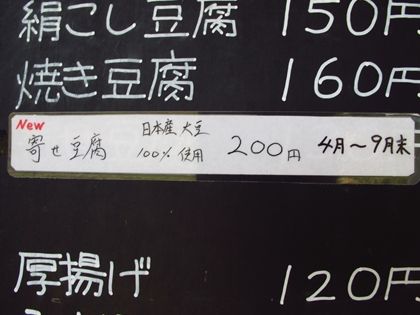 絹こし豆腐 150円
焼き豆腐 160円
New
寄せ豆腐 日本産大豆 100% 使用 200円 4月~9月末
厚揚げ 120円